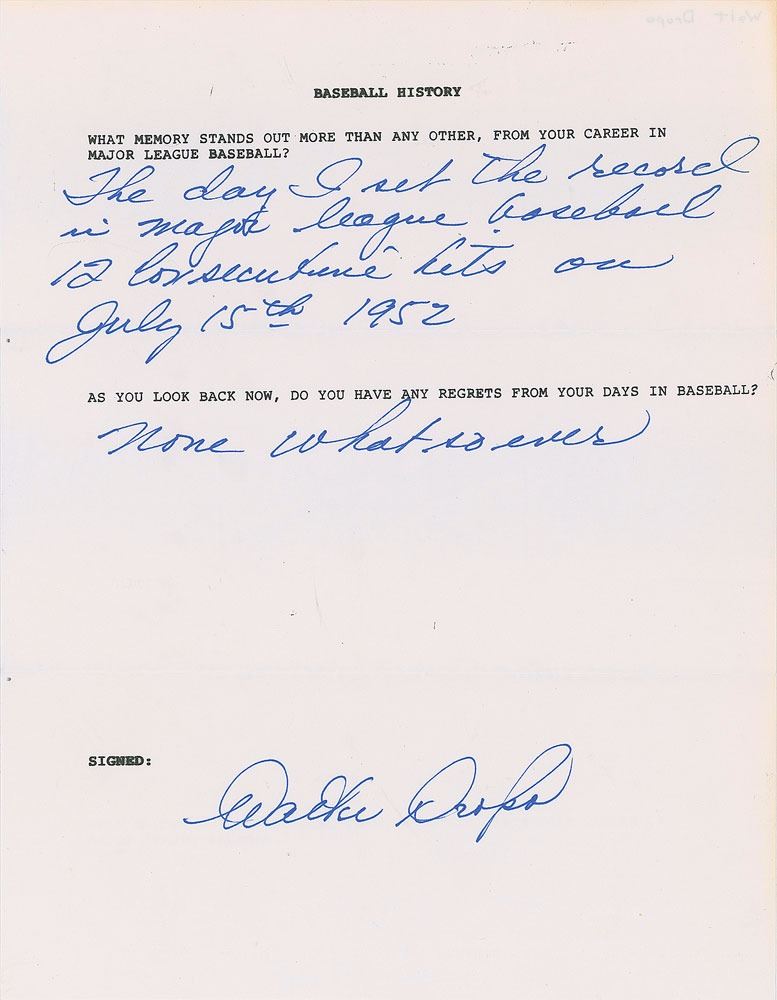 Walt Dropo
BASEBALL HISTORY
WHAT MEMORY STANDS OUT MORE THAN ANY OTHER, FROM YOUR CAREER IN
MAJOR LEAGUE BASEBALL?
The day I set the record
in major league baseball
12 Consecutive hits on
July 15th 1952
AS YOU LOOK BACK NOW, DO YOU HAVE ANY REGRETS FROM YOUR DAYS IN BASEBALL?
None whatsoever
SIGNED:
Walter Dropo